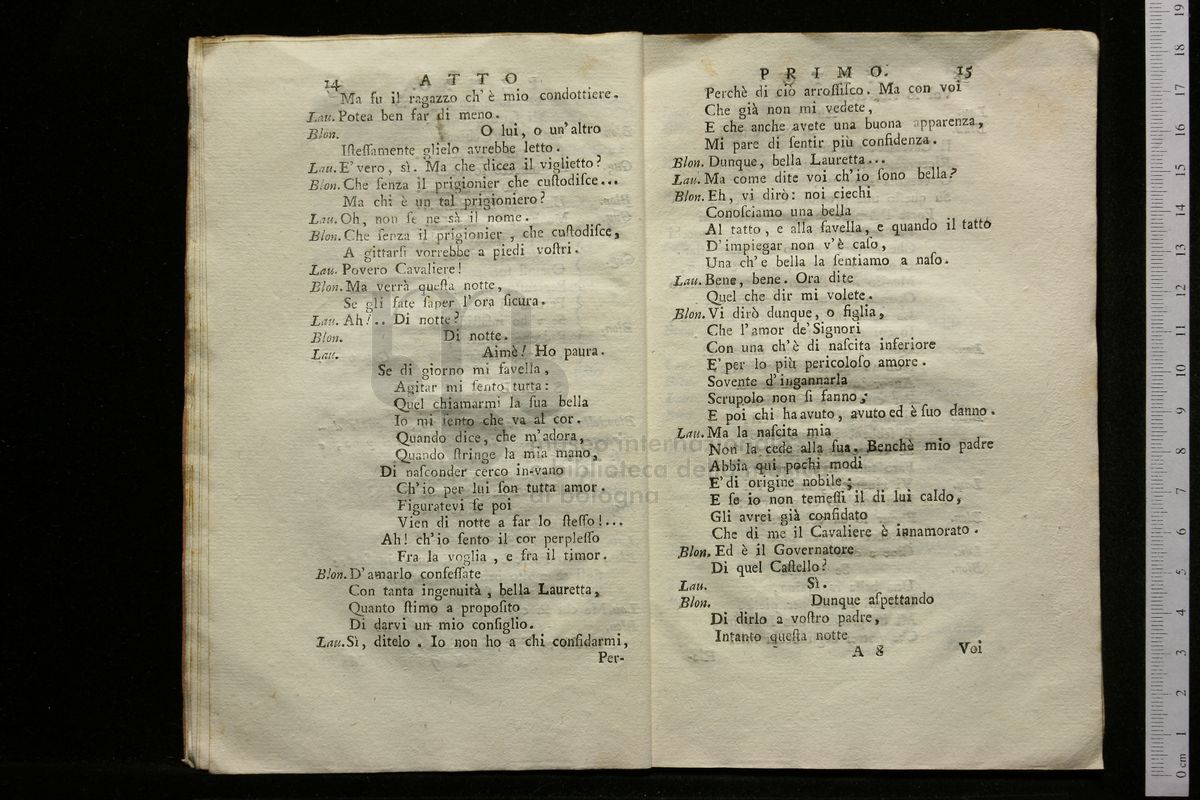 14 ATTO
Ma fu il ragazzo ch' è mio condottiere.
Lau. Potea ben far di meno.
Blon. O lui, o un' altro
Iſteſſamente glielo avrebbe letto.
Lau. E' vero, sì. Ma che dicea il viglietto?
Blon. Che ſenza il prigionier che cuſtodiſce...
Ma chi è un tal prigioniero?
Lau. Oh, non ſe ne sà il nome.
Blon. Che ſenza il prigionier, che cuſtodiſce,
A gittarſi vorrebbe a piedi voſtri.
Lau. Povero Cavaliere!
Blon. Ma verrà queſta notte,
Se gli fate ſaper l'ora ſicura.
Lau. Ah!.. Di notte?
Blon. Di notte.
Lau. Aimè! Ho paura.
Se di giorno mi favella,
Agitar mi ſento tutta:
Quel chiamarmi la ſua bella
Io mi ſento che va al cor.
Quando dice, che m'adora,
Quando ſtringe la mia mano,
Di naſconder cerco in-vano
Ch'io per lui ſon tutta amor.
Figuratevi ſe poi
Vien di notte a far lo ſteſſo!...
Ah! ch'io ſento il cor perpleſſo
Fra la voglia, e fra il timor.
Blon. D'amarlo confeſſate
Con tanta ingenuità, bella Lauretta,
Quanto ſtimo a propoſito
Di darvi un mio conſiglio.
Lau. Sì, ditelo. Io non ho a chi confidarmi,
Per-
PRIMO. 15
Perchè di ciò arroſſiſco. Ma con voi
Che già non mi vedete,
E che anche avete una buona apparenza,
Mi pare di ſentir più confidenza.
Blon. Dunque, bella Lauretta...
Lau. Ma come dite voi ch'io ſono bella?
Blon. Eh, vi dirò: noi ciechi
Conoſciamo una bella
Al tatto, e alla favella, e quando il tatto
D'impiegar non v'è caſo,
Una ch'e bella la ſentiamo a naſo.
Lau. Bene, bene. Ora dite
Quel che dir mi volete.
Blon. Vi dirò dunque, o figlia,
Che l'amor de' Signori
Con una ch'è di naſcita inferiore
E' per lo più pericoloſo amore.
Sovente d'ingannarla
Scrupolo non ſi fanno;
E poi chi ha avuto, avuto ed è ſuo danno.
Lau. Ma la naſcita mia
Non la cede alla ſua. Benchè mio padre
Abbia qui pochi modi
E' di origine nobile;
E ſe io non temeſſi il di lui caldo,
Gli avrei già confidato
Che di me il Cavaliere è innamorato.
Blon. Ed è il Governatore
Di quel Caſtello?
Lau. Sì.
Blon. Dunque aſpettando
Di dirlo a voſtro padre,
Intanto queſta notte
A 8 Voi
museo internazionale
biblioteca della
di bologna
0 cm 1 2 3 4 5 6 7 8 9 10 11 12 13 14 15 16 17 18 19